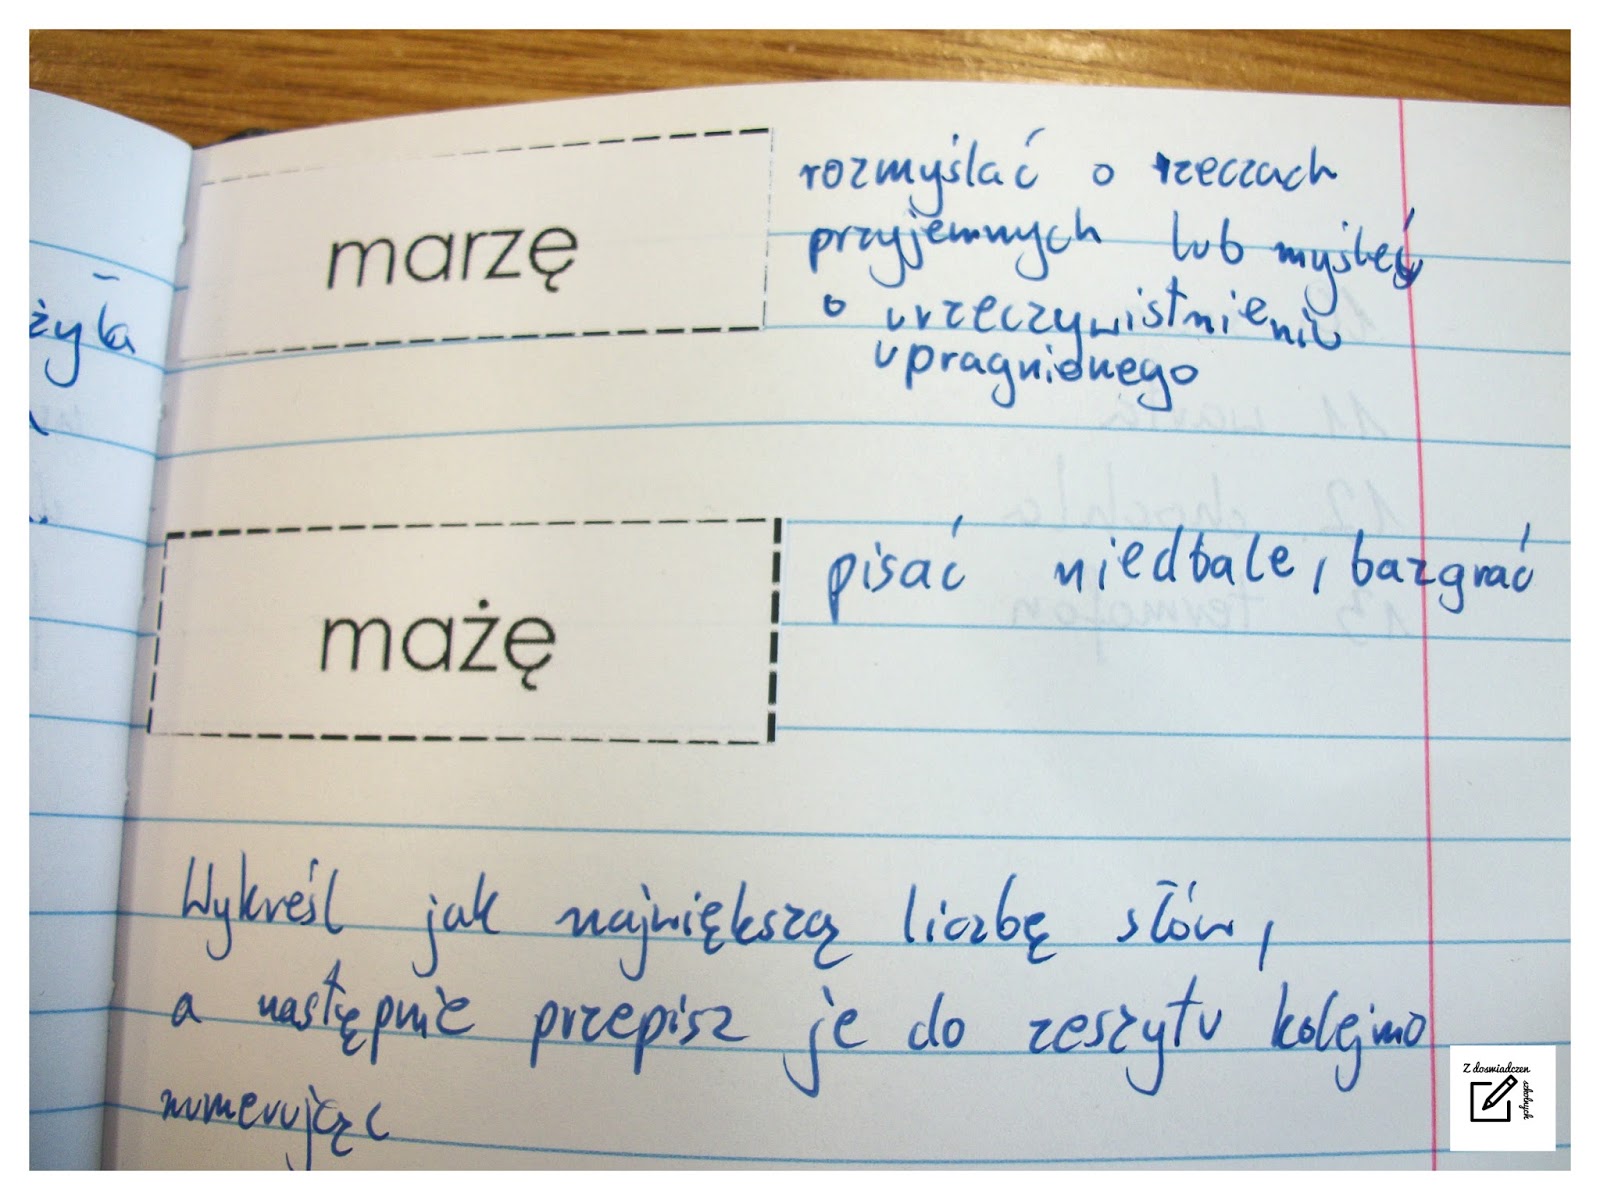 marzę
rozmyślać o rzeczach
przyjemnych lub myśleć
o urzeczywistnieniu
upragnionego
żyła
mażę
pisać niedbale, bazgrać
Wykreśl jak największą liczbę słów,
a następnie przepisz je do zeszytu kolejno
numerując
11. warta
12. chochla
13. termofon
Z doswiadczen
szkolnych